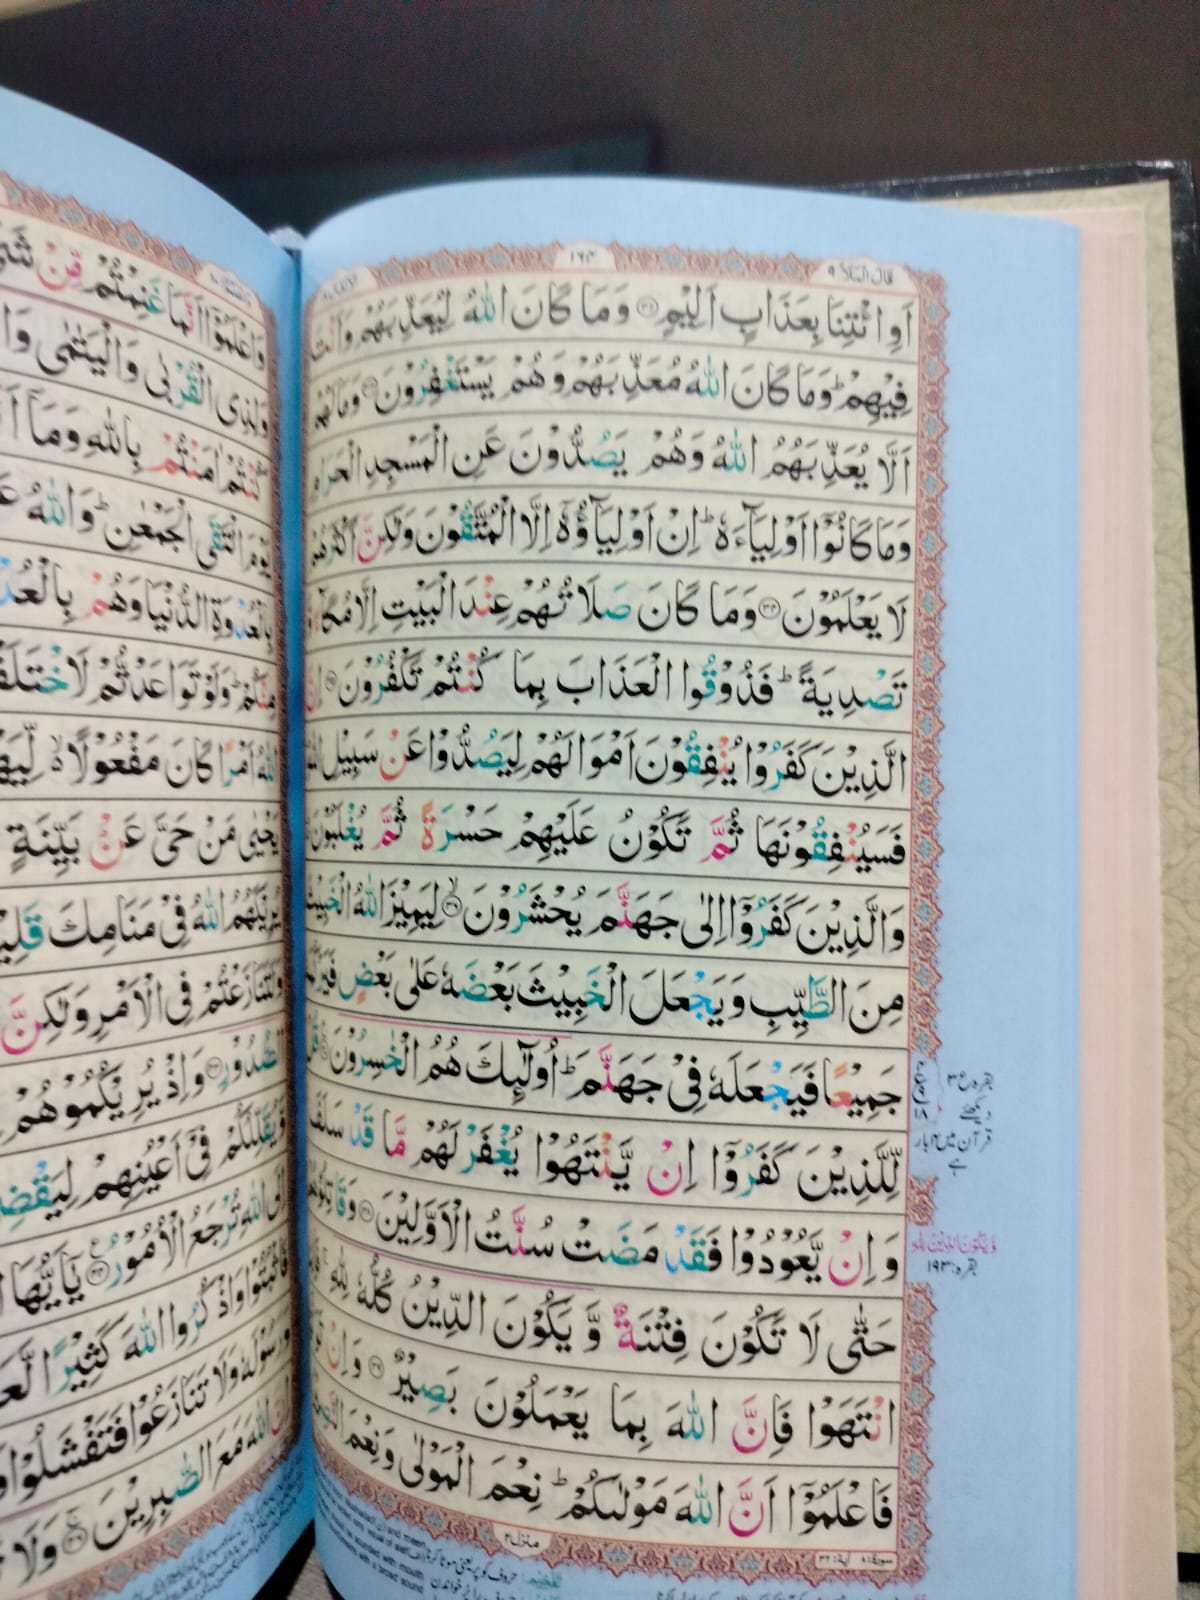 قال الملا ٩
١٦٣
اَوِ ائْتِنَا بِعَذَابٍ اَلِيْمٍ ﴿٣٢﴾ وَمَا كَانَ اللّٰهُ لِيُعَذِّبَهُمْ وَاَنْتَ
فِيْهِمْ ؕ وَمَا كَانَ اللّٰهُ مُعَذِّبَهُمْ وَهُمْ يَسْتَغْفِرُوْنَ ﴿٣٣﴾ وَمَا لَهُمْ
اَلَّا يُعَذِّبَهُمُ اللّٰهُ وَهُمْ يَصُدُّوْنَ عَنِ الْمَسْجِدِ الْحَرَامِ
وَمَا كَانُوْۤا اَوْلِيَآءَهٗ ؕ اِنْ اَوْلِيَآؤُهٗۤ اِلَّا الْمُتَّقُوْنَ وَلٰكِنَّ اَكْثَرَهُمْ
لَا يَعْلَمُوْنَ ﴿٣٤﴾ وَمَا كَانَ صَلَاتُهُمْ عِنْدَ الْبَيْتِ اِلَّا مُكَآءً
تَصْدِيَةً ؕ فَذُوْقُوا الْعَذَابَ بِمَا كُنْتُمْ تَكْفُرُوْنَ ﴿٣٥﴾ اِنَّ
الَّذِيْنَ كَفَرُوْا يُنْفِقُوْنَ اَمْوَالَهُمْ لِيَصُدُّوْا عَنْ سَبِيْلِ اللّٰهِ
فَسَيُنْفِقُوْنَهَا ثُمَّ تَكُوْنُ عَلَيْهِمْ حَسْرَةً ثُمَّ يُغْلَبُوْنَ
وَالَّذِيْنَ كَفَرُوْۤا اِلٰى جَهَنَّمَ يُحْشَرُوْنَ ﴿٣٦﴾ لِيَمِيْزَ اللّٰهُ الْخَبِيْثَ
مِنَ الطَّيِّبِ وَيَجْعَلَ الْخَبِيْثَ بَعْضَهٗ عَلٰى بَعْضٍ
جَمِيْعًا فَيَجْعَلَهٗ فِيْ جَهَنَّمَ ؕ اُولٰٓئِكَ هُمُ الْخٰسِرُوْنَ ﴿٣٧﴾ قُلْ
لِّلَّذِيْنَ كَفَرُوْۤا اِنْ يَّنْتَهُوْا يُغْفَرْ لَهُمْ مَّا قَدْ سَلَفَ
وَ اِنْ يَّعُوْدُوْا فَقَدْ مَضَتْ سُنَّتُ الْاَوَّلِيْنَ ﴿٣٨﴾ وَقَاتِلُوْهُمْ
حَتّٰى لَا تَكُوْنَ فِتْنَةٌ وَّ يَكُوْنَ الدِّيْنُ كُلُّهٗ لِلّٰهِ ۚ
انْتَهَوْا فَاِنَّ اللّٰهَ بِمَا يَعْمَلُوْنَ بَصِيْرٌ ﴿٣٩﴾ وَاِنْ
فَاعْلَمُوْۤا اَنَّ اللّٰهَ مَوْلٰىكُمْ ؕ نِعْمَ الْمَوْلٰى وَنِعْمَ النَّصِيْرُ
منزل ٢
بقره ع ٣
دیکھئے
قرآن میں ٢ بار
ہے
وَّيَكُوْنَ الدِّيْنُ لِلّٰهِ
بقره: ١٩٣
وَاعْلَمُوْۤا اَنَّمَا غَنِمْتُمْ مِّنْ
وَلِذِى الْقُرْبٰى وَالْيَتٰمٰى
كُنْتُمْ اٰمَنْتُمْ بِاللّٰهِ وَمَاۤ
يَوْمَ الْتَقَى الْجَمْعٰنِ ؕ وَاللّٰهُ
بِالْعُدْوَةِ الدُّنْيَا وَهُمْ
مِنْكُمْ ؕ وَلَوْ تَوَاعَدْتُّمْ
اللّٰهُ اَمْرًا كَانَ مَفْعُوْلًا
يَحْيٰى مَنْ حَيَّ عَنْ بَيِّنَةٍ
يُرِيْكَهُمُ اللّٰهُ فِيْ مَنَامِكَ
وَلَتَنَازَعْتُمْ فِي الْاَمْرِ وَلٰكِنَّ
الصُّدُوْرِ ﴿٤٣﴾ وَاِذْ يُرِيْكُمُوْهُمْ
وَّيُقَلِّلُكُمْ فِيْۤ اَعْيُنِهِمْ
اِلَى اللّٰهِ تُرْجَعُ الْاُمُوْرُ ﴿٤٤﴾ يٰۤاَيُّهَا
فَاثْبُتُوْا وَاذْكُرُوا اللّٰهَ كَثِيْرًا
وَرَسُوْلَهٗ وَلَا تَنَازَعُوْا فَتَفْشَلُوْا
اِنَّ اللّٰهَ مَعَ الصّٰبِرِيْنَ ﴿٤٦﴾ وَلَا